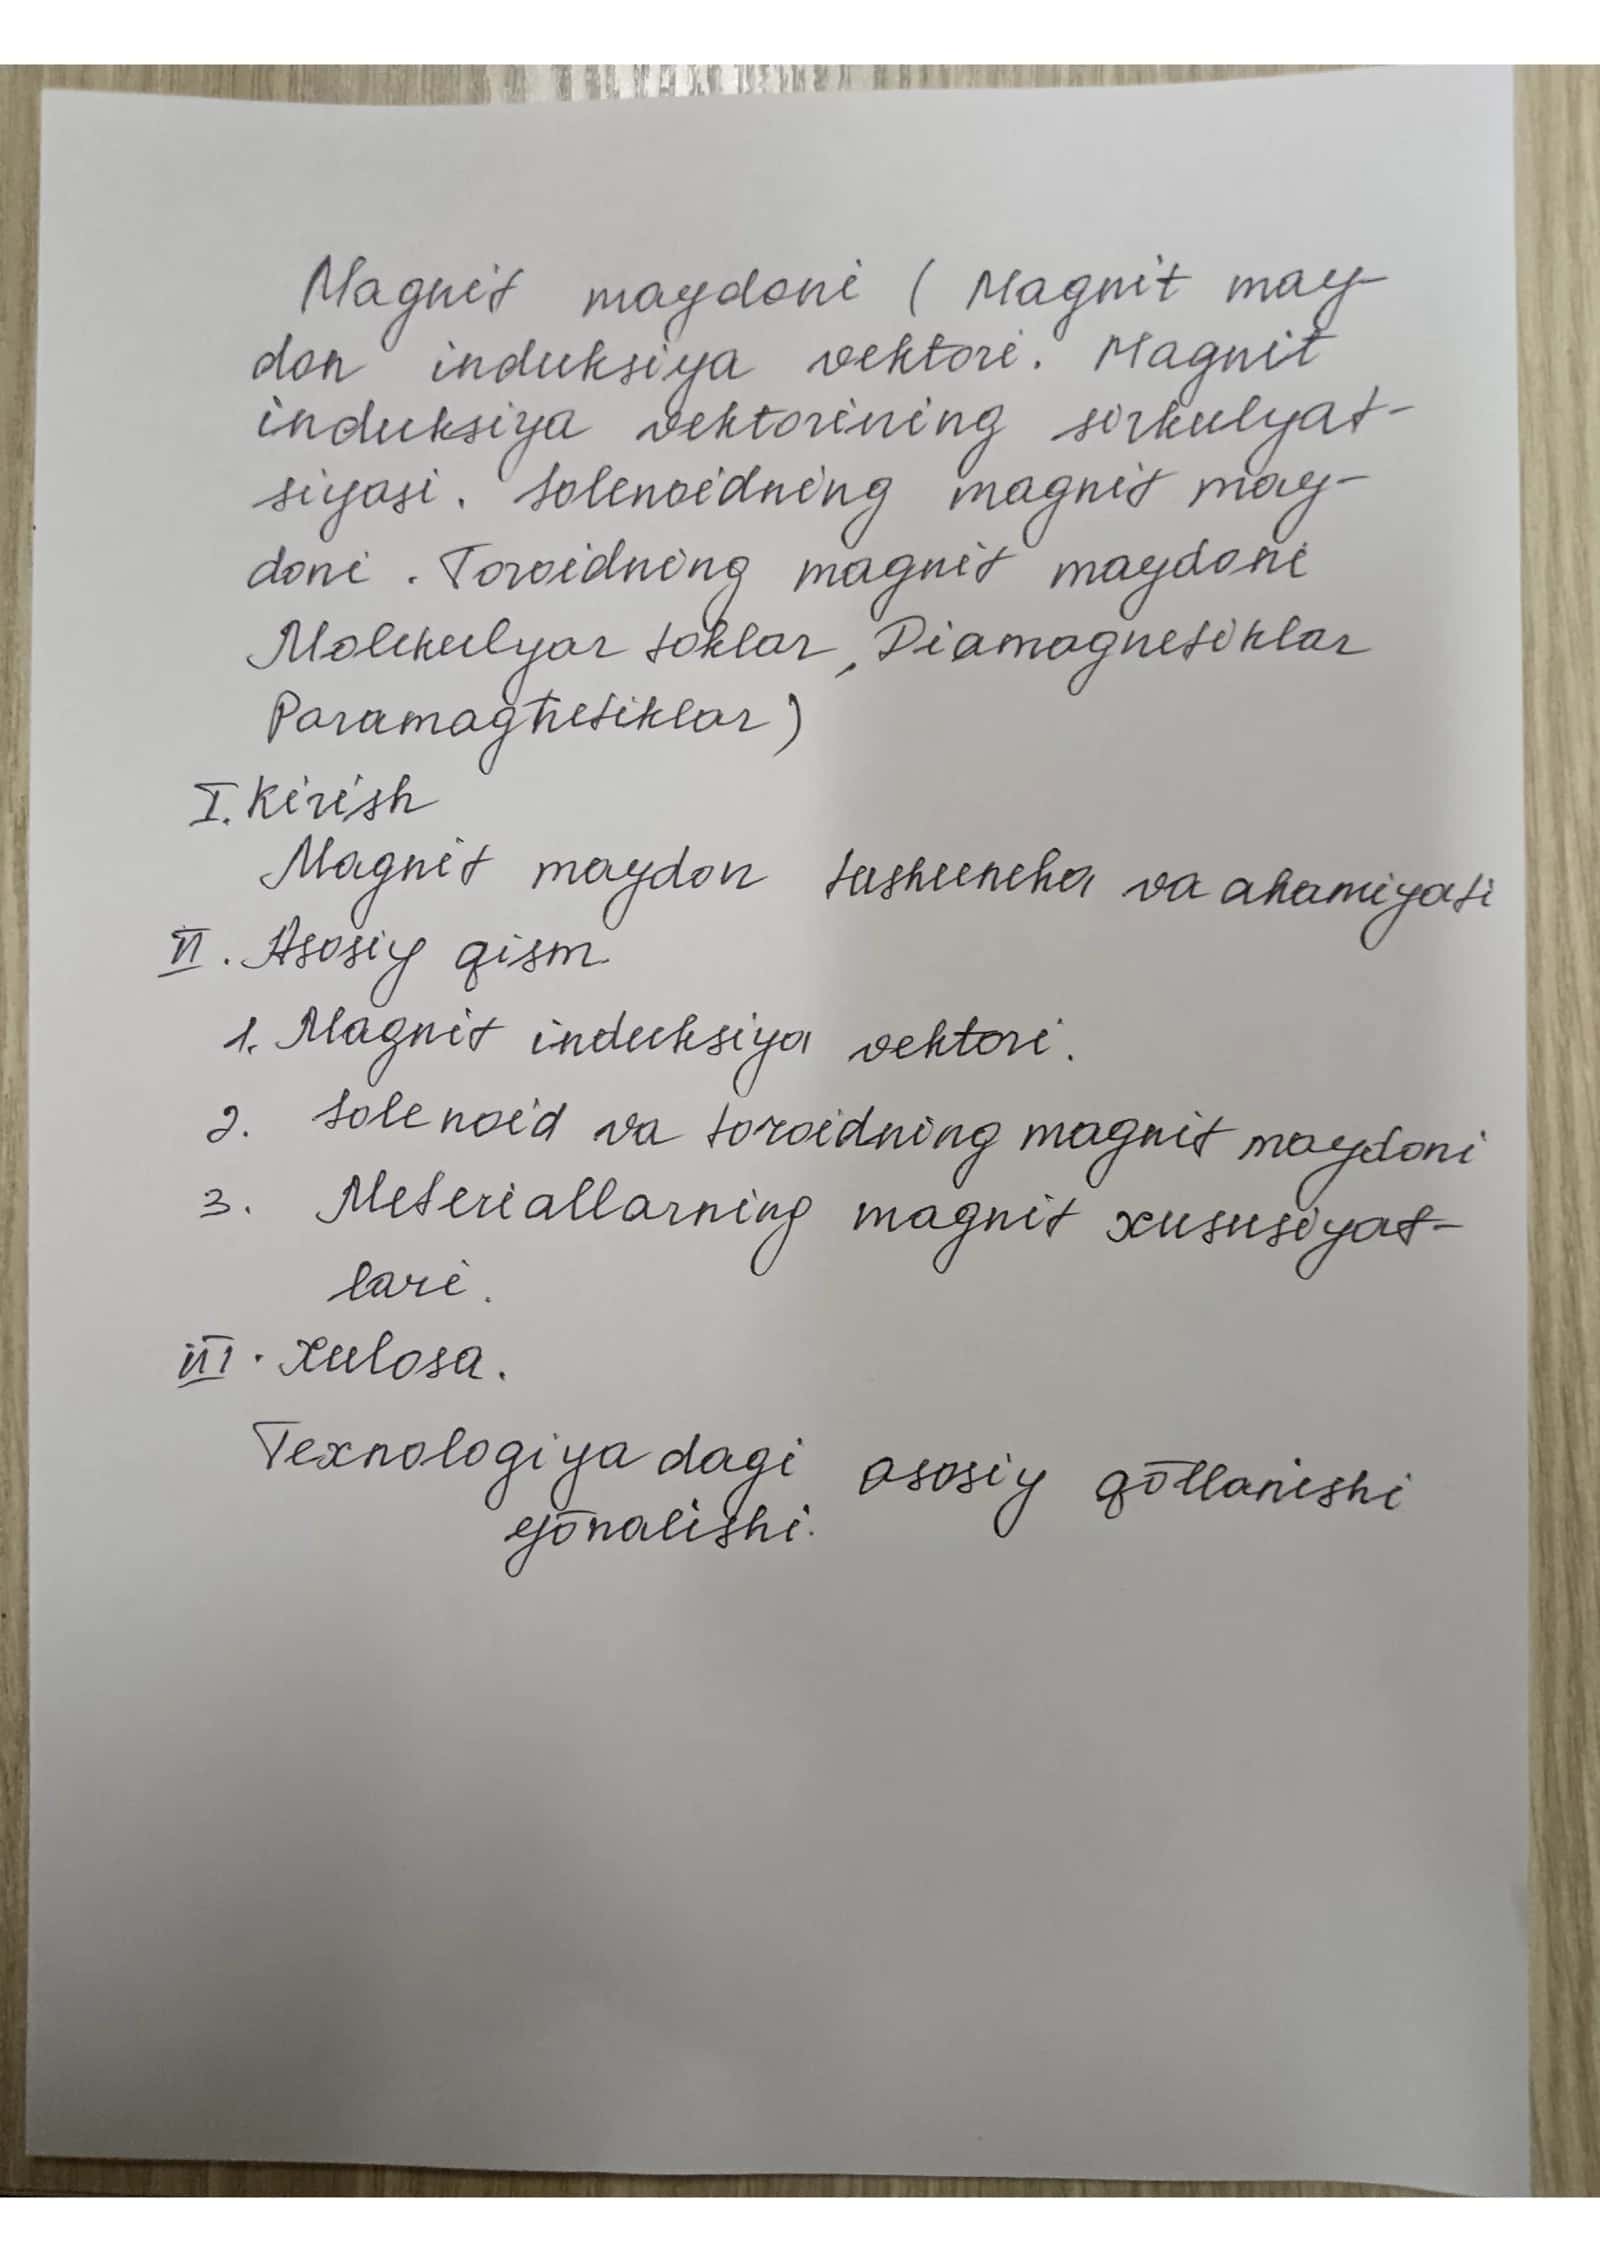 Magnit maydoni ( Magnit may-
don induksiya vektori. Magnit
induksiya vektorining sirkulyat-
siyasi. Solenoidning magnit may-
doni. Toroidning magnit maydoni
Molekulyar toklar, Diamagnetiklar
Paramagnetiklar)
I. Kirish
Magnit maydon tushuncha va ahamiyati
II. Asosiy qism
1. Magnit induksiya vektori.
2. Solenoid va toroidning magnit maydoni
3. Meteriallarning magnit xususiyat-
lari.
III. Xulosa.
Texnologiyadagi asosiy qōllanishi
yōnalishi.